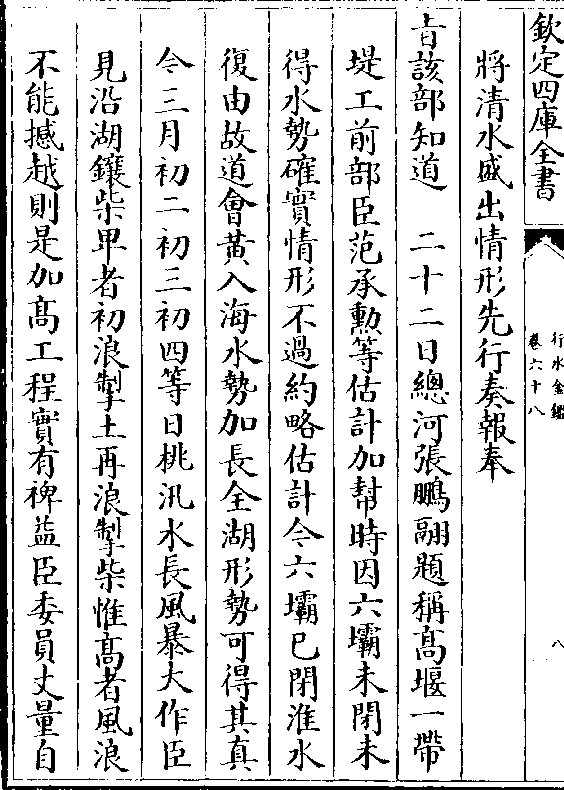 欽定四庫全書
行水金鑑
卷六十八
八
將清水盛出情形先行奏報奉
旨該部知道　二十二日總河張鵬翮題稱髙堰一帶
堤工前部臣范承勳等估計加幫時因六壩未閉未
得水勢確實情形不過約略估計今六壩已閉淮水
復由故道會黃入海水勢加長全湖形勢可得其真
今三月初二初三初四等日桃汛水長風暴大作臣
見沿湖鑲柴卑者初浪掣土再浪掣柴惟髙者風浪
不能撼越則是加髙工程實有裨益臣委員丈量自